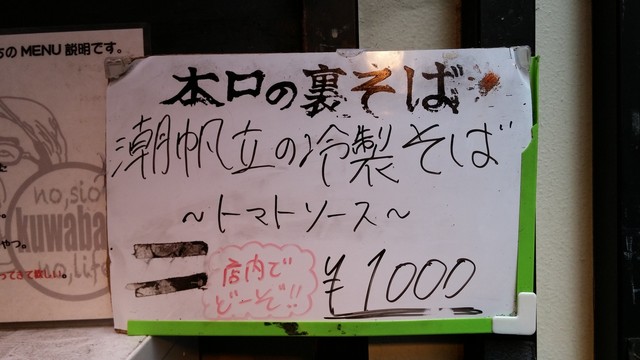 ちのMENU説明です。
本口の裏そば
潮帆立の冷製そば
~トマトソース~
店内で
どーぞ!!
¥1000
no,sio
kuwaba
no,life
やつ。
ってきて欲しい。